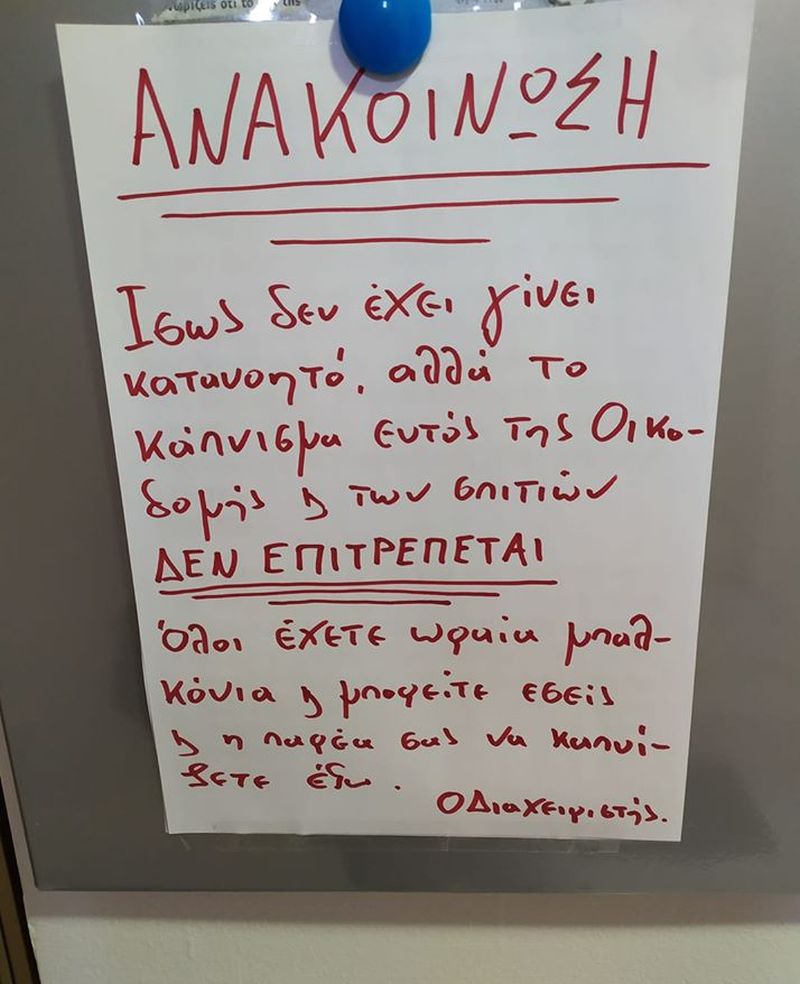 νωρίζεις ότι το της
ΑΝΑΚΟΙΝΩΣΗ
Ισως δεν έχει γίνει
κατανοητό, αλλά το
κάπνισμα εντός της Οικο-
δομής ϗ των σπιτιών
ΔΕΝ ΕΠΙΤΡΕΠΕΤΑΙ
Όλοι έχετε ωραία μπαλ-
κόνια ϗ μπορείτε εσείς
ϗ η παρέα σας να καπνί-
ζετε έξω.
Ο Διαχειριστής.